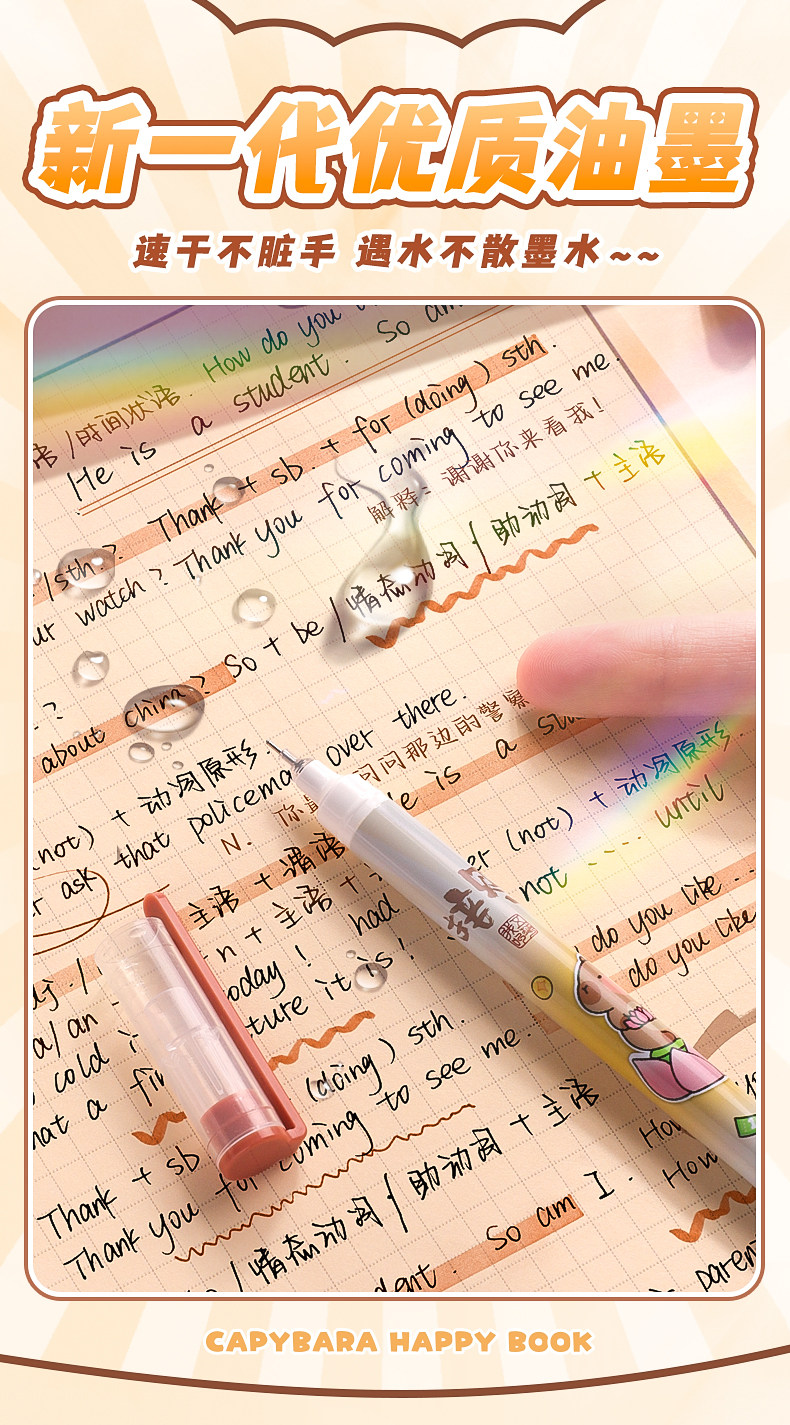 新一代优质油墨
速干不脏手 遇水不散墨水~~
How do you
So am
语/时间状语.
He is a student.
Thank + sb. + for (doing) sth.
/sth?
Thank you for coming to see me.
解释: 谢谢你来看我!
ur watch?
So + be / 情态动词 / 助动词 + 主语
?
about china?
(not) + 动词原形.
over there.
ask that policema
问问那边的警察
N.
is a stu
er (not) + 动词原形.
主语 + 谓语
not .... until
n + 主语 +
had
do you like ..
do you like
oday!
a/an
ture it is!
cold
hat a fin
(doing) sth.
to see me.
Thank + sb
Thank you for coming
情态动词 / 助动词 + 主语
So am I.
How
How
dent.
paren
CAPYBARA HAPPY BOOK